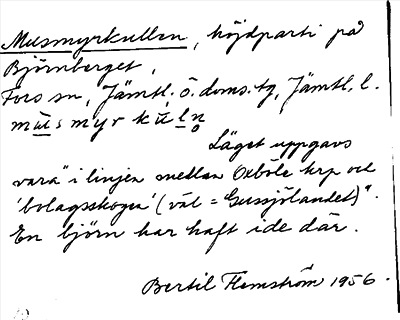 Musmyrkullen, höjdparti på
Björnberget,
Fors sn, Jämtl. ö. doms. tg, Jämtl. l.
mu̲s myr ku̲l̲n̥
Läget uppgavs
vara "i linjen mellan Oxböle krp och
'bolagsskogen' (väl = Gussjölandet)".
En björn har haft ide där.
Bertil Flemström 1956.